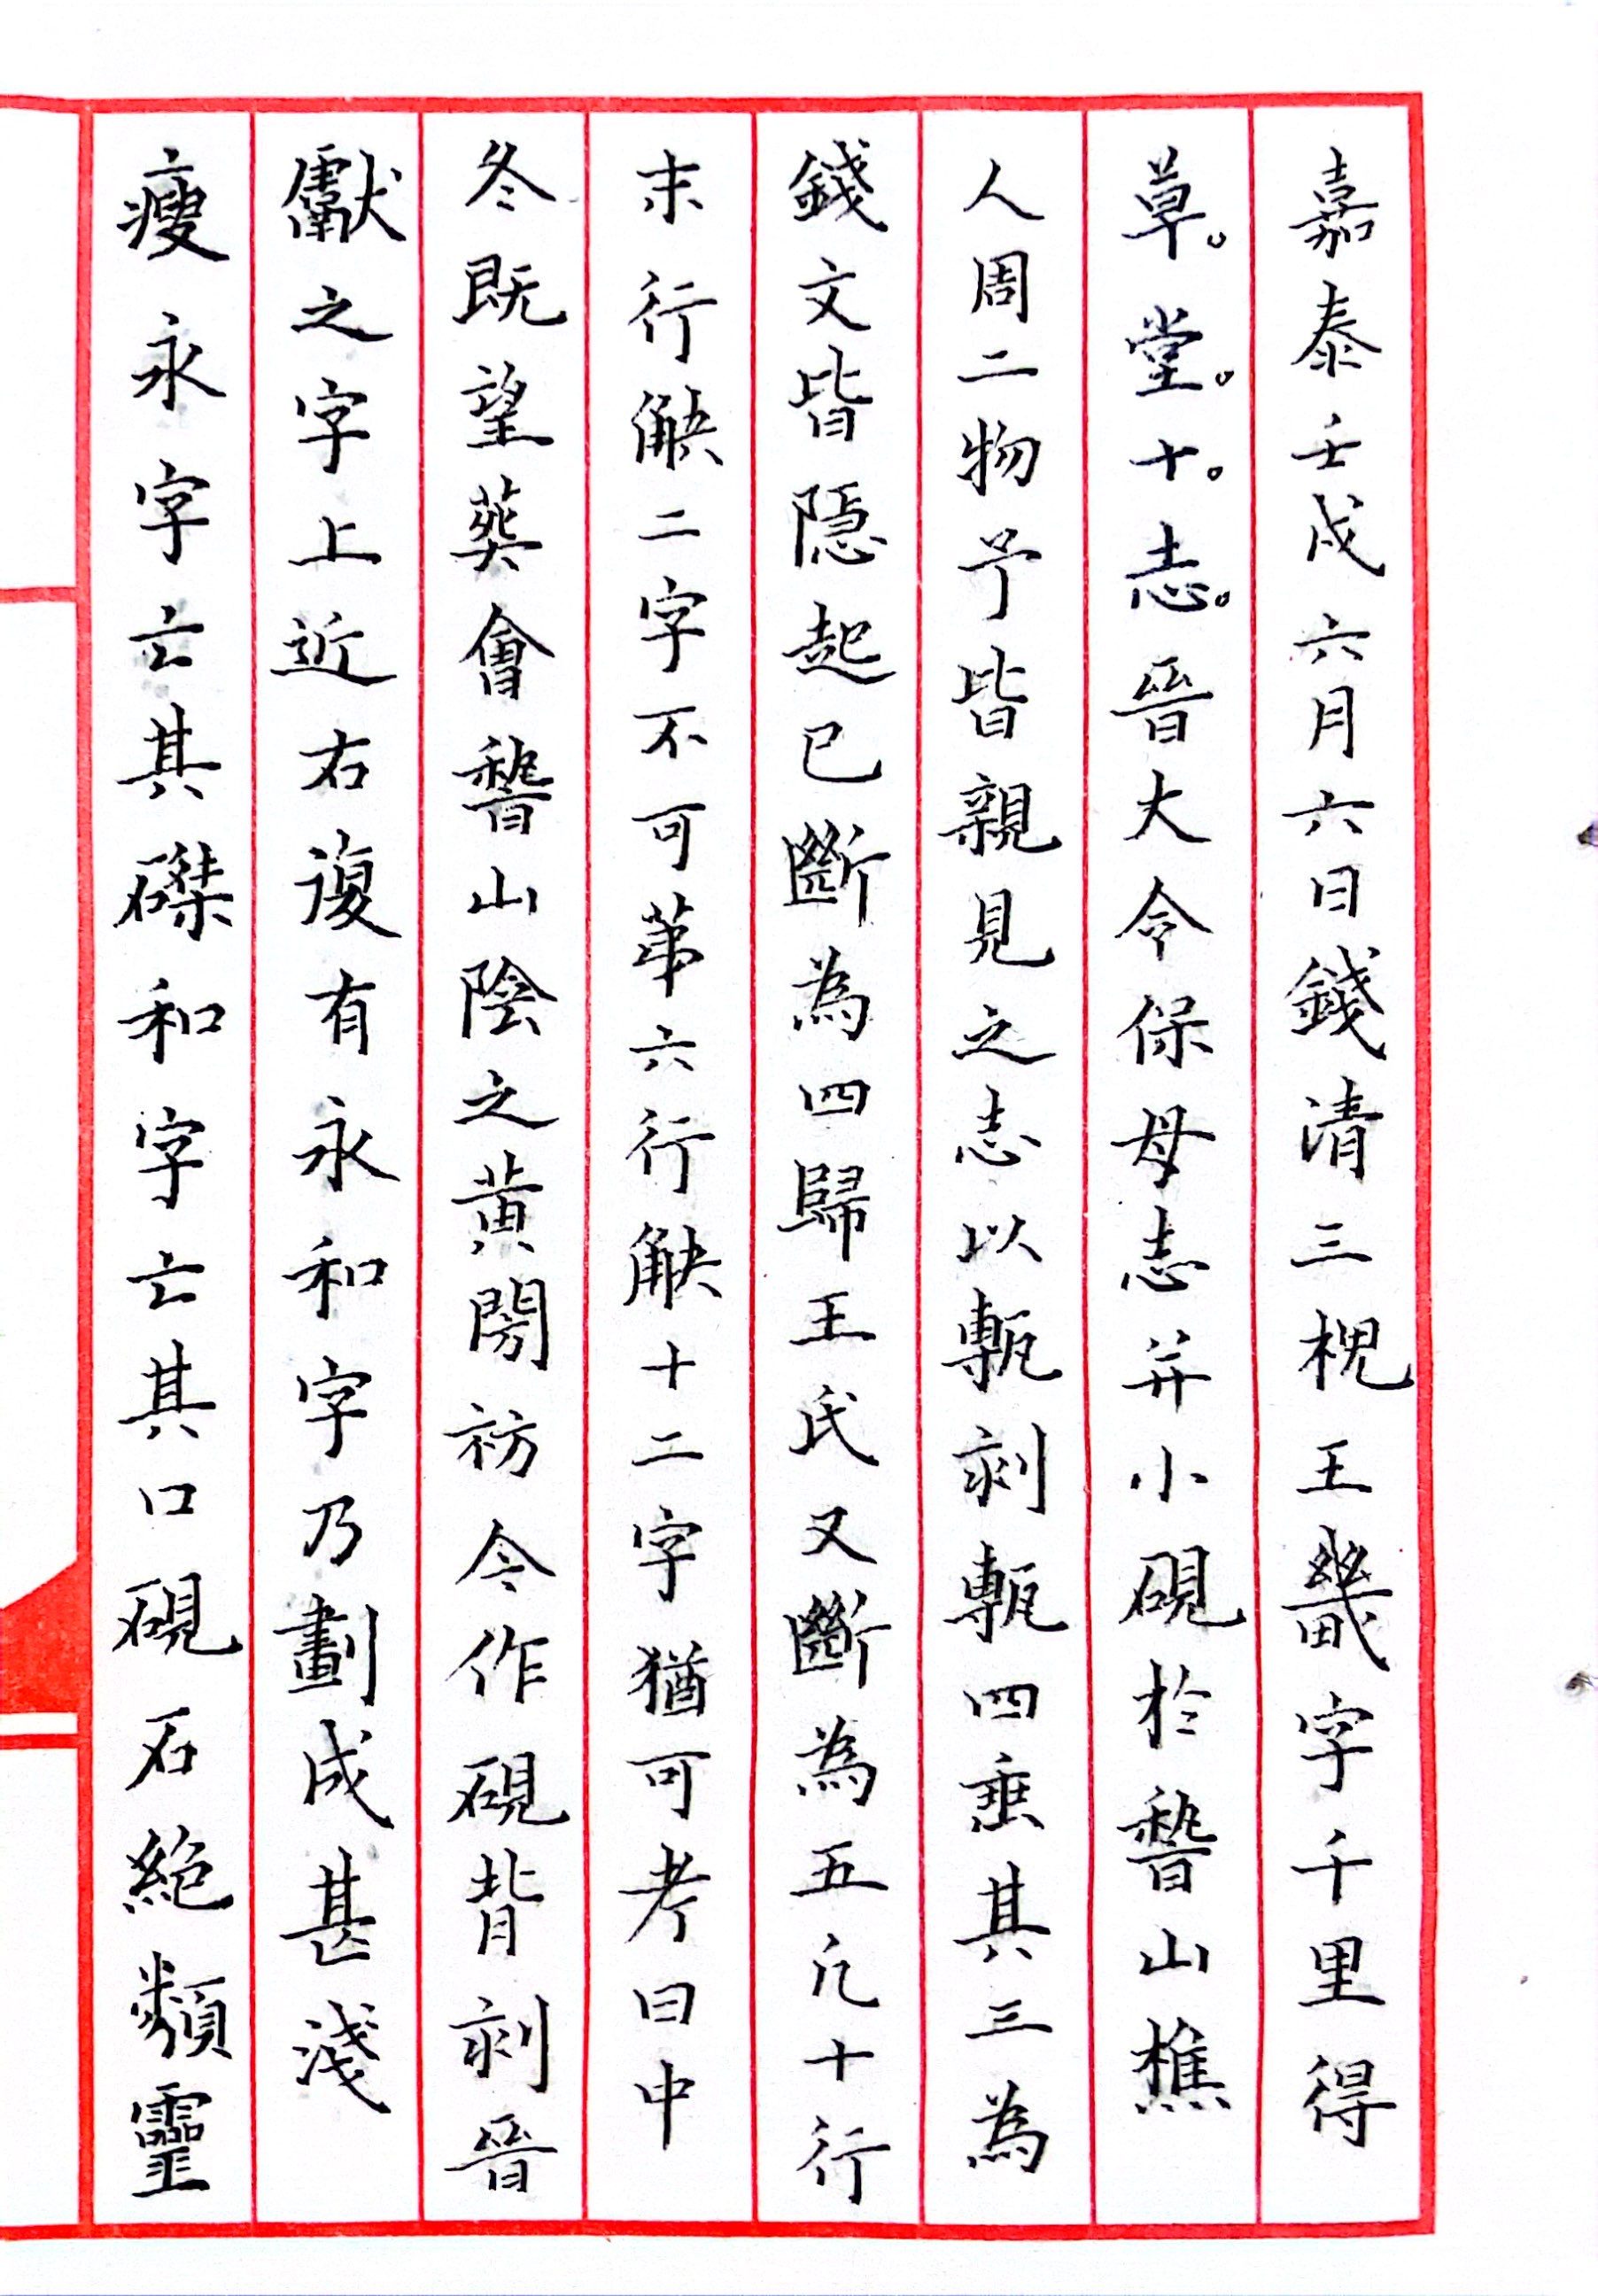 嘉泰壬戌六月六日錢清三槐王畿字千里得
草。堂。十。志。晉大令保母志并小硯於稽山樵
人周二物予皆親見之志以甎刻甎四垂其三為
錢文皆隱起已斷為四歸王氏又斷為五凡十行
末行缺二字不可苐六行缺十二字猶可考曰中
冬既望葬會稽山陰之黃閍祊今作硯背刻晉
獻之字上近右復有永和字乃劃成甚淺
瘦永字亡其磔和字亡其口硯石絕類靈